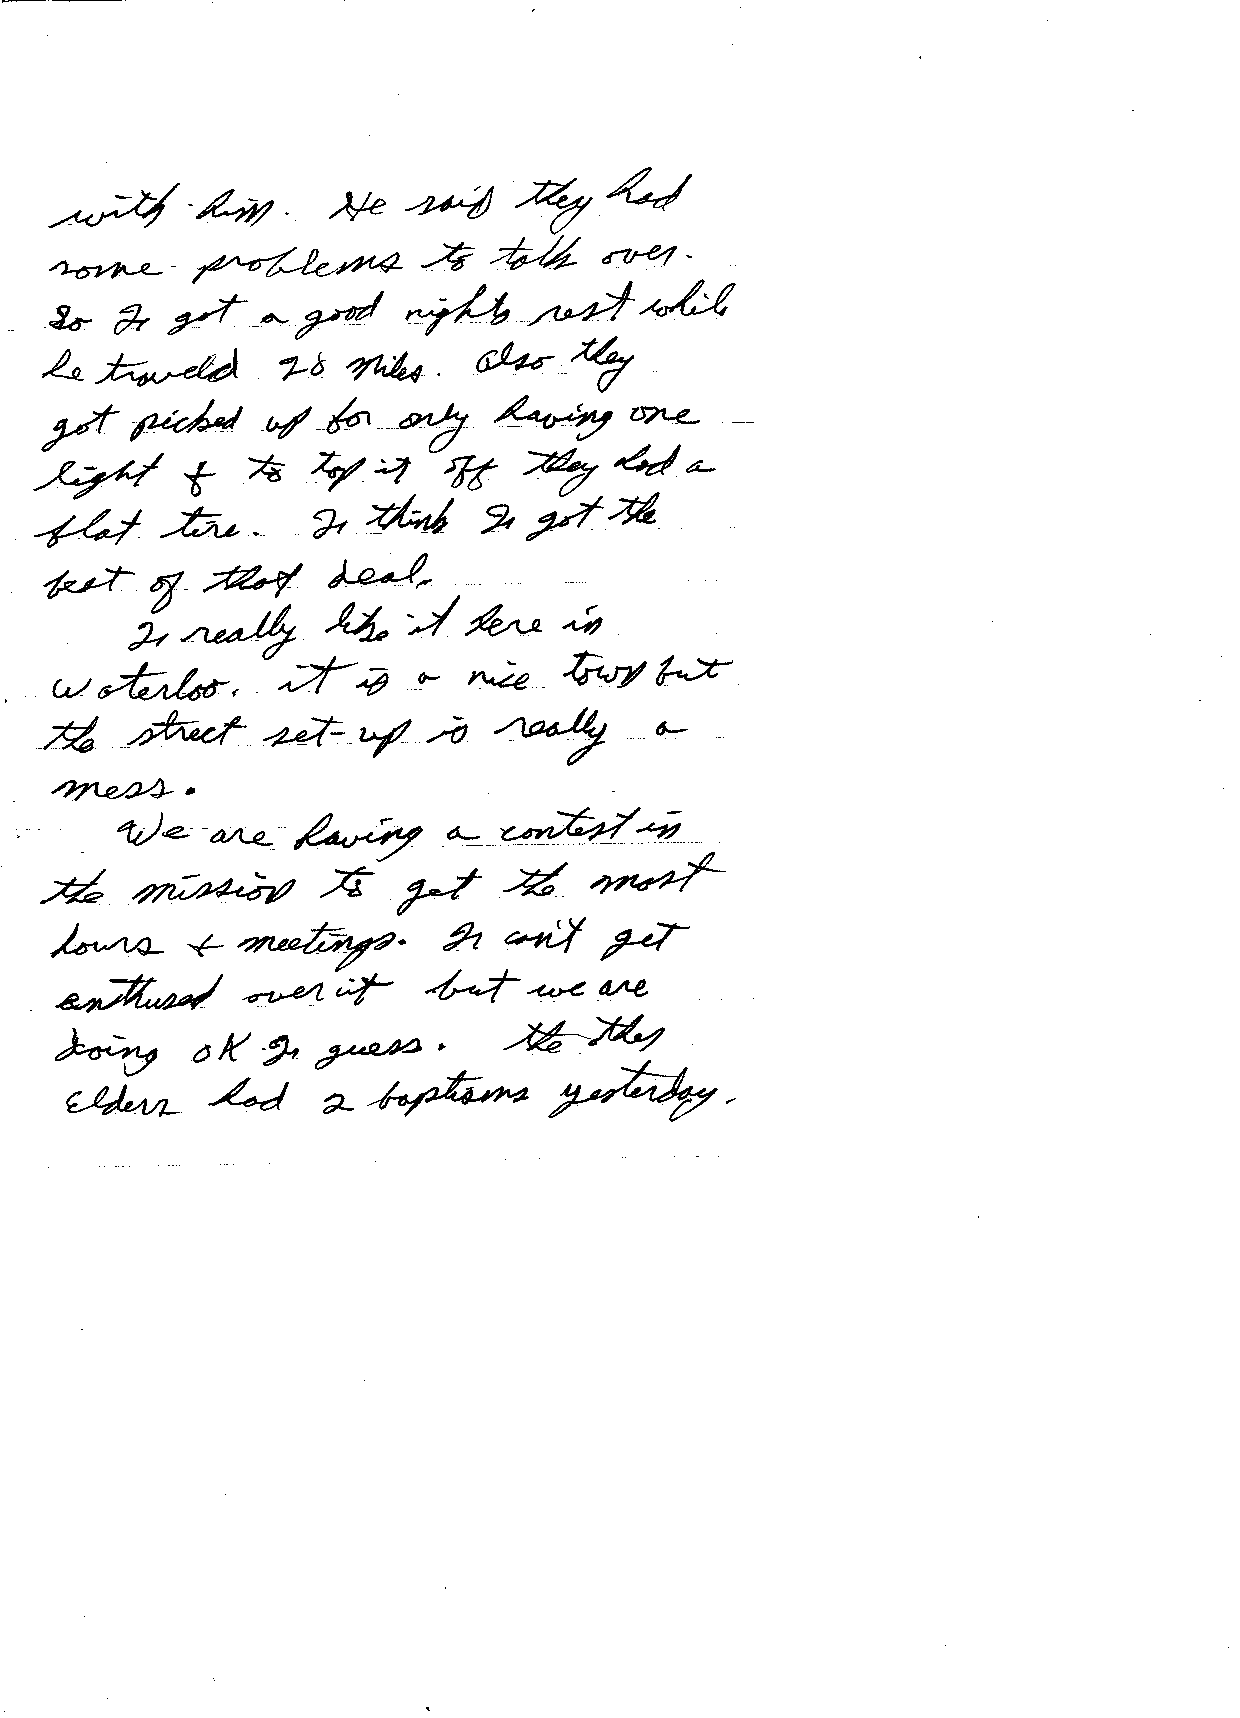 with him. He said they had
some problems to talk over.
So I got a good nights rest while
he traveld 28 miles. Also they
got picked up for only having one
light & to top it off they had a
flat tire. I think I got the
best of that deal.
I really like it here in
Waterloo. it is a nice town but
the street set-up is really a
mess.
We are having a contest in
the mission to get the most
hours & meetings. I can't get
enthused over it but we are
doing OK I guess. the
Elders had 2 baptisms yesterday.